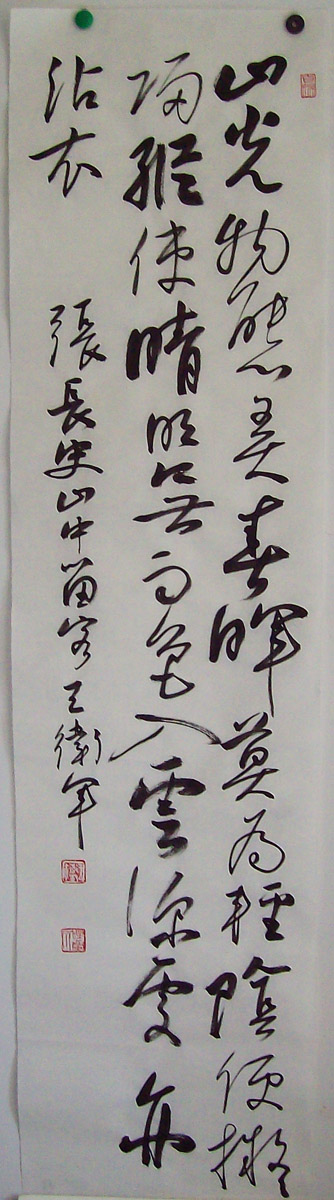 山光物態弄春暉莫為輕陰便擬
歸縱使晴明無雨色入雲深處亦
沾衣 張長史山中留客 王衛軍